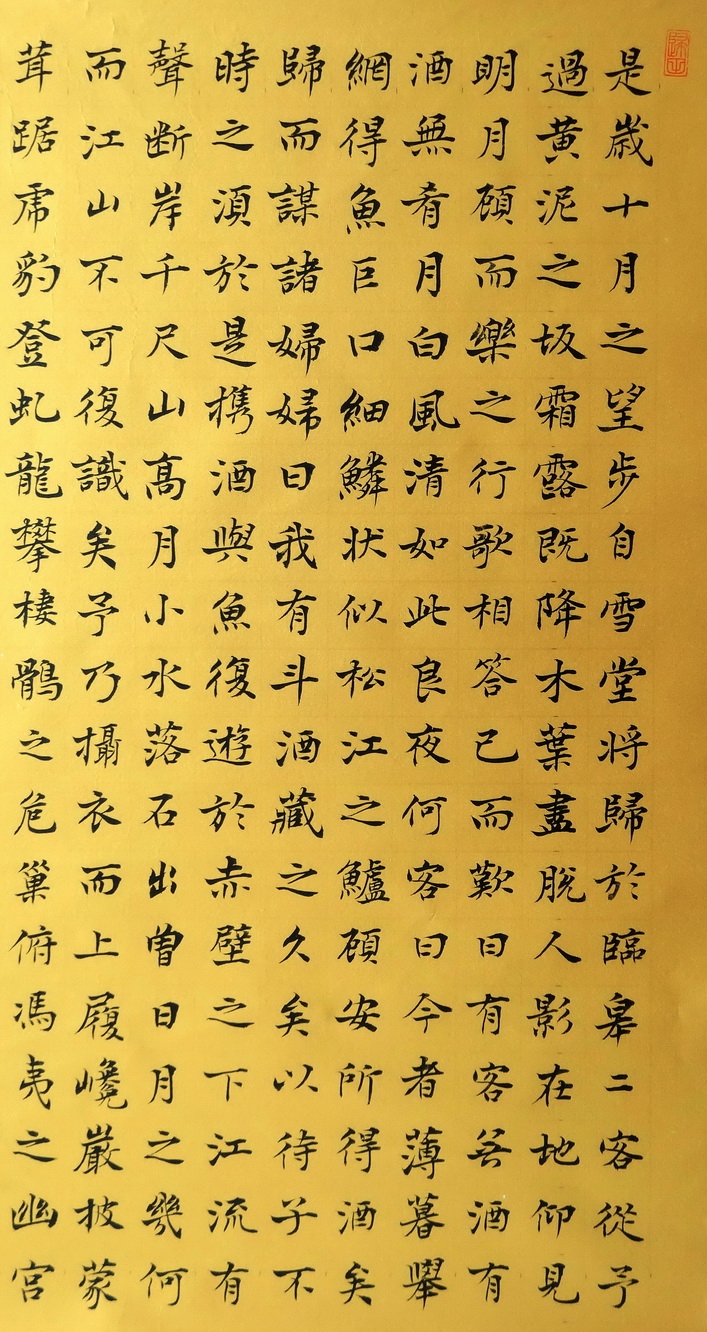 是歲十月之望步自雪堂将歸於臨皋二客從予
過黃泥之坂霜露既降木葉盡脫人影在地仰見
明月顧而樂之行歌相答已而歎曰有客無酒有
酒無肴月白風清如此良夜何客曰今者薄暮舉
網得魚巨口細鱗状似松江之鱸顧安所得酒矣
歸而謀諸婦婦曰我有斗酒藏之久矣以待子不
時之須於是携酒與魚復遊於赤壁之下江流有
聲断岸千尺山高月小水落石出曾日月之幾何
而江山不可復識矣予乃攝衣而上履巉巖披蒙
茸踞虎豹登虬龍攀棲鶻之危巢俯馮夷之幽宮